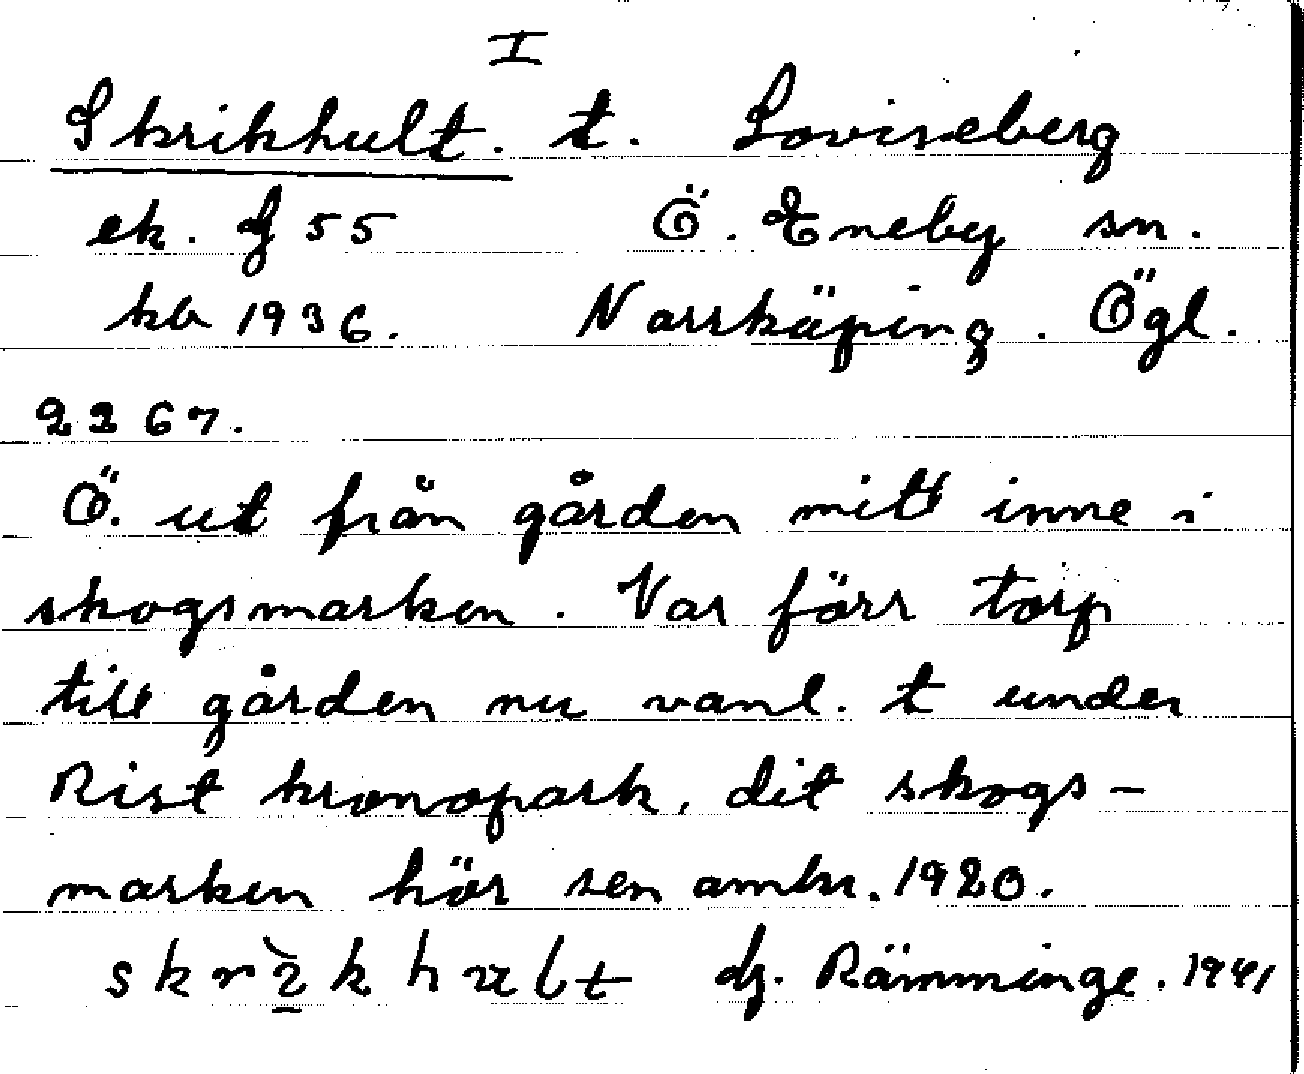 I
Skrikhult. t. Loviseberg
ek. f 55 Ö. Eneby sn.
kb 1936. Norrköping. Ögl.
2267.
Ö. ut från gården mitt inne i
skogsmarken. Var förr torp
till gården nu vanl. t under
Rist kronopark, dit skogs-
marken hör sen omkr. 1920.
skrikhult dj. Rämminge. 1941